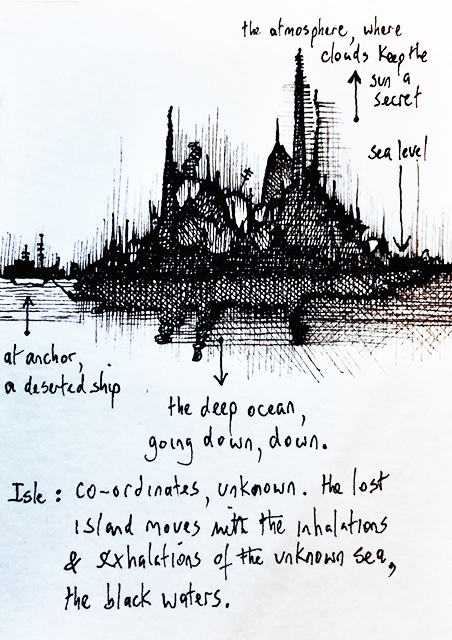 the atmosphere, where
clouds keep the
sun a
secret
sea level
at anchor,
a deserted ship
the deep ocean,
going down, down.
Isle : co-ordinates, unknown. the lost
island moves with the inhalations
& exhalations of the unknown sea,
the black waters.